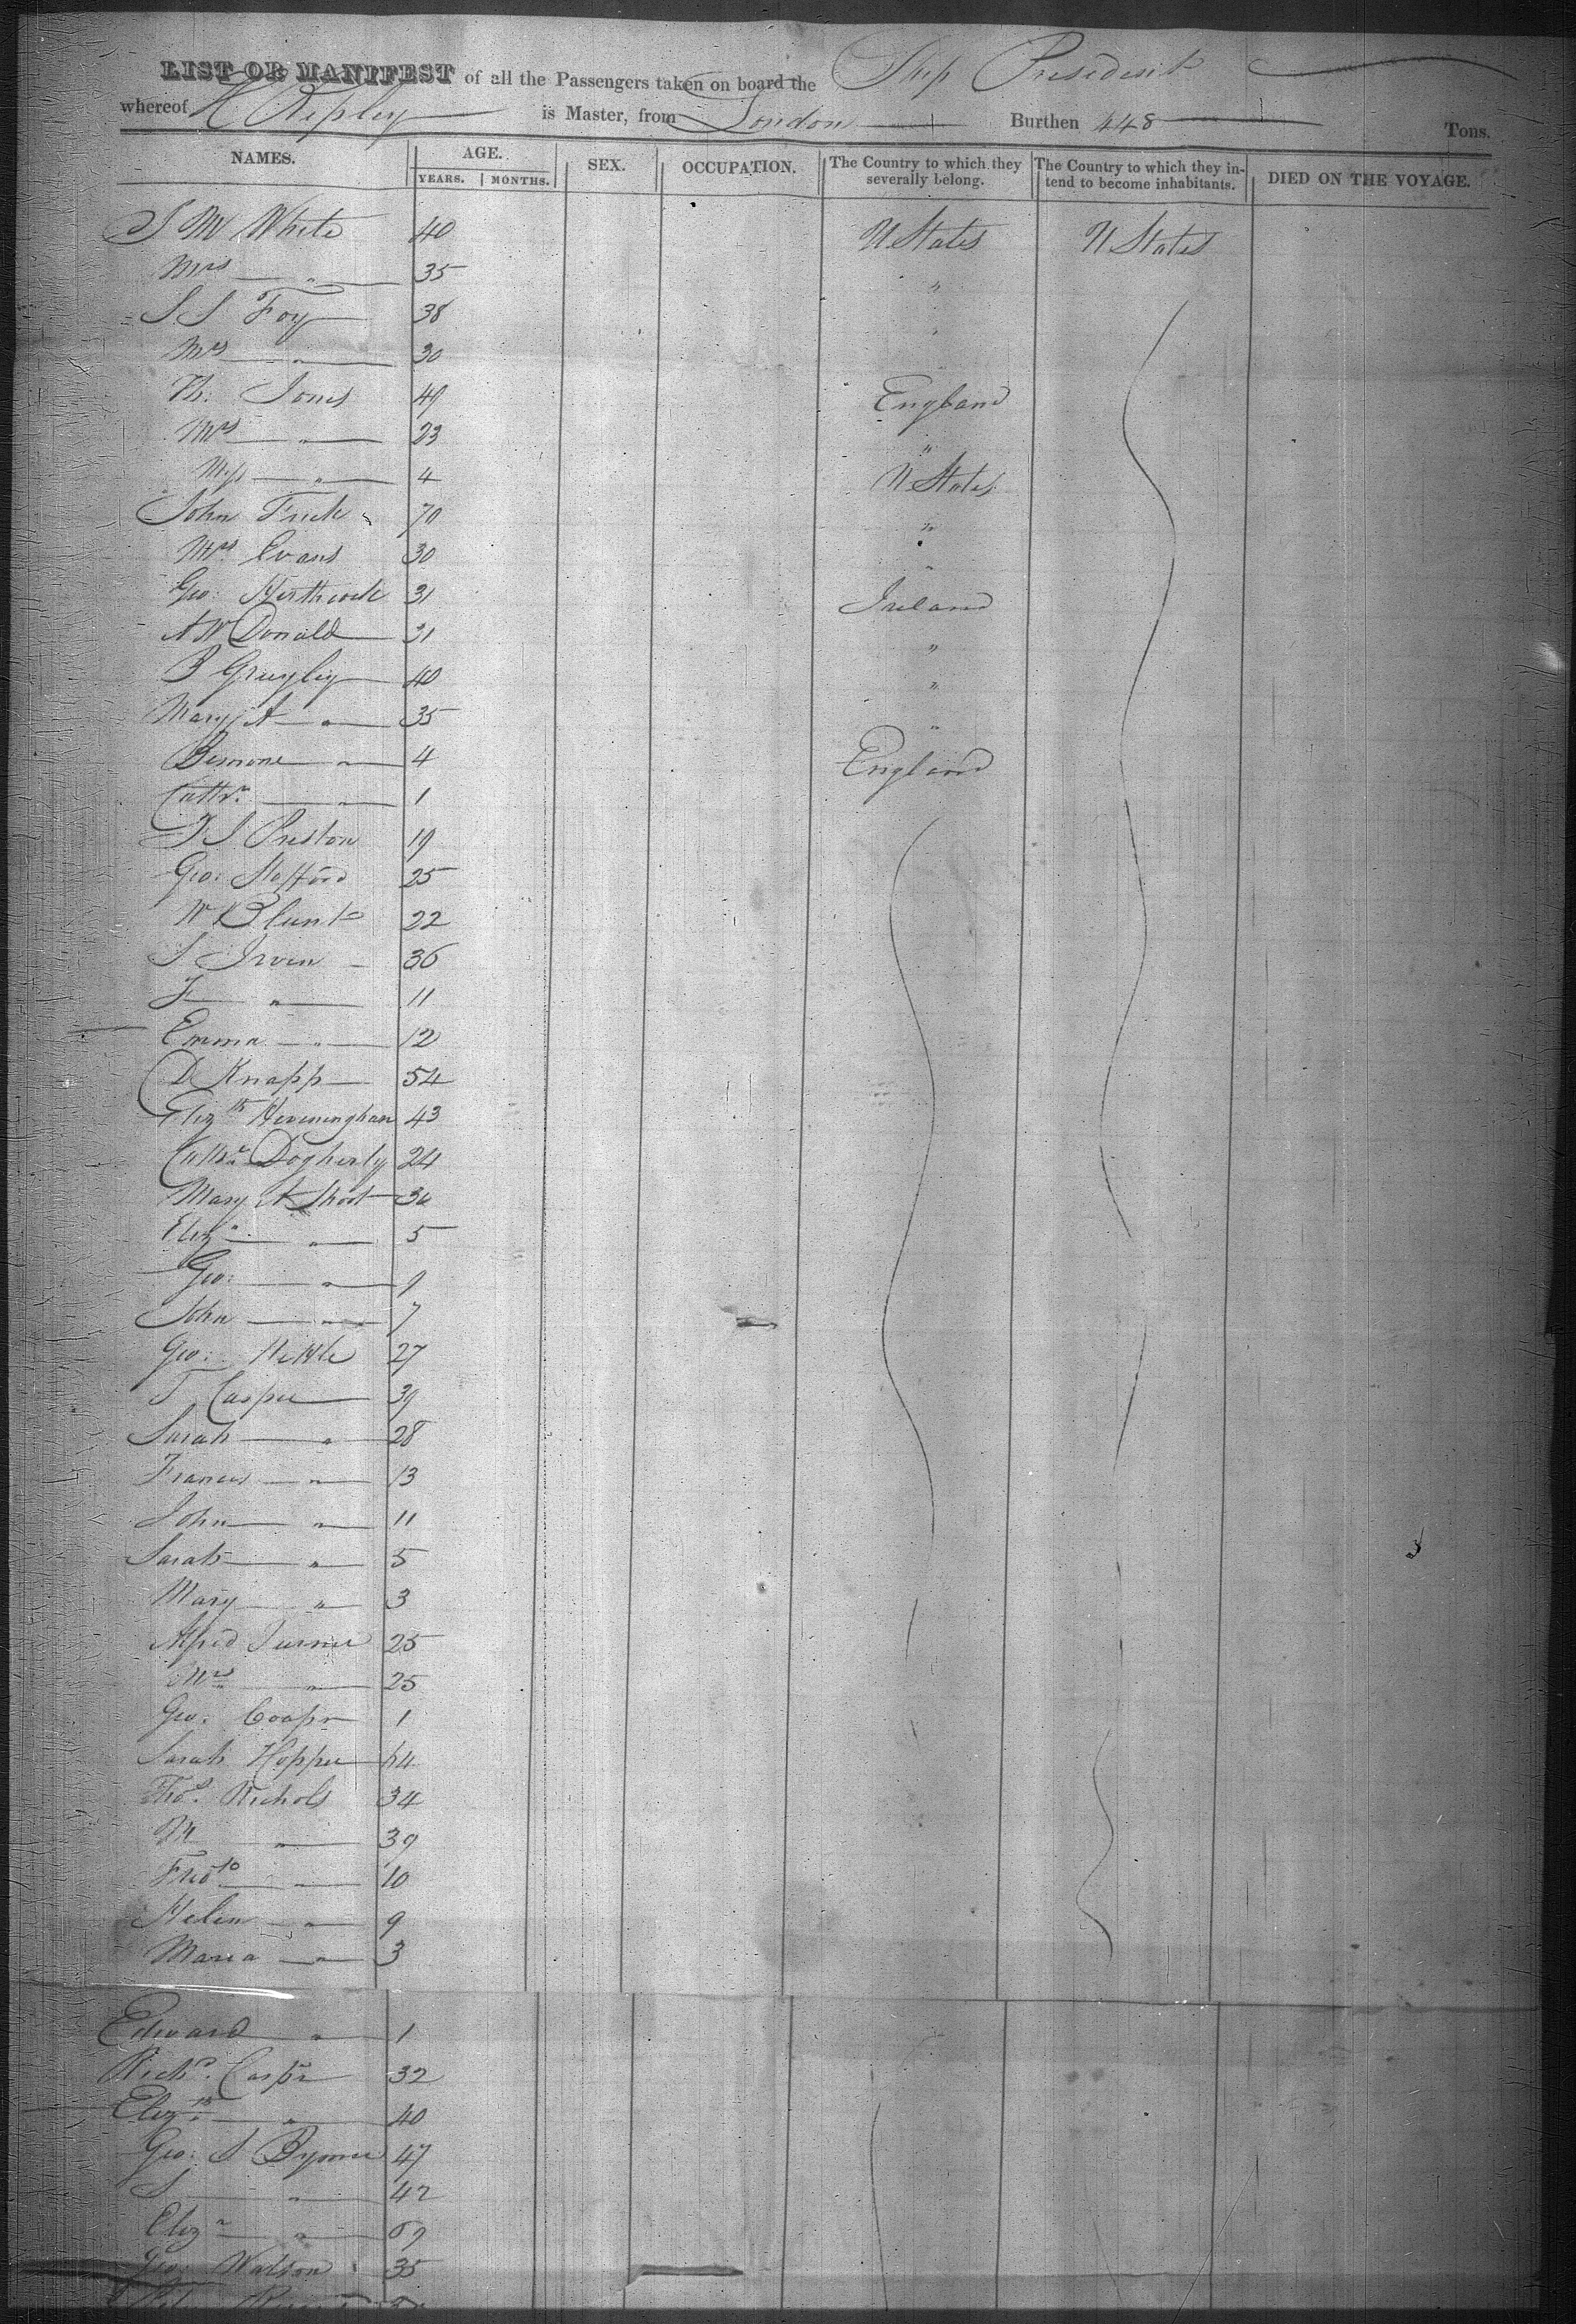 LIST OR MANIFEST of all the Passengers taken on board the Ship President
whereof H Ripley is Master, from London Burthen 448 Tons.
NAMES. AGE. SEX. OCCUPATION. The Country to which they severally belong. The Country to which they intend to become inhabitants. DIED ON THE VOYAGE.
YEARS. MONTHS.
S M White 40 U States U States
Mrs " 35 "
S S Foy 38 "
Mrs " 30
Th: Jones 49 England
Mrs " 23 "
Miss " 4 U States
John 70 "
Mrs Evans 30 "
Geo: 31 Ireland
Donald 31 "
B 40 "
Mary A " 35 "
" 4 England
Cathr. " 1
Preston 19
Geo: Stafford 25
W Blunt 22
S Irven 36
F " 11
Emma " 12
D Knapp 54
Elizth Heveningham 43
Cathr. Dogherty 24
Mary A
Eliz " 5
Geo: " 9
John " 7
Geo: 27
T Casper 39
Sarah " 28
Frances " 13
John " 11
Sarah " 5
Mary " 3
Alfred Turner 25
Mrs " 25
Geo: Coapr 1
Sarah Hopper
Thos. Nichols 34
M " 39
10
Helen " 9
Maria " 3
Edward " 1
Richd. Caspr 32
Elizth " 40
Geo: S Byrne 47
S " 42
Eliz "
Geo: Watson 35